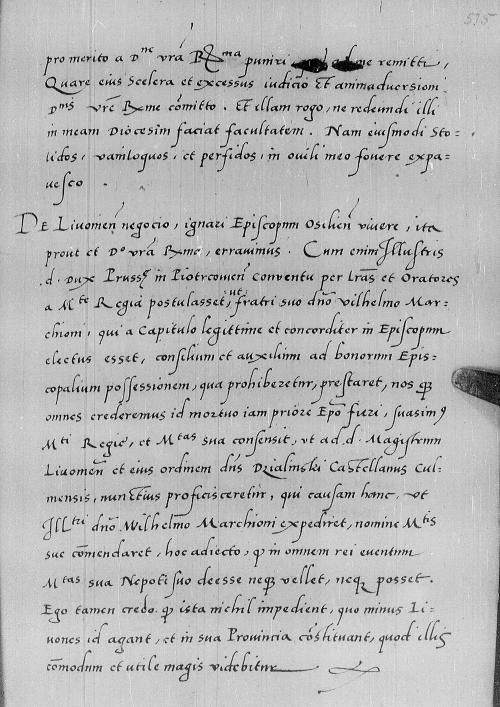 575
pro merito a D^ne vrã R^ma puniri remitti,
Quare eius Scelera et excessus iudicio Et animaduersioni
D^nis vrẽ R̃me cõmitto. Et illam rogo, ne redeundi illi
in meam Diocesim faciat facultatem. Nam eiusmodi Sto=
lidos, vaniloquos, et perfidos, in ouili meo fouere expa=
uesco.
De Liuonieñ negocio, ignari Episcopum Osilieñ viuere, ita
prout et D^o vrã R̃me, errauimus. Cum enim Illustris
.d. Dux Prussẽ in Piotrcouieñ conuentu per lrãs et Oratores
a M^te Regia postulasset, ut fratri suo dño vilhelmo Mar=
chioni, qui a Capitulo legittime et concorditer in Episcopum
electus esset, consilium et auxilium ad bonorum Epis=
copalium possessionem, qua prohiberetur, prestaret, nos q̃
omnes crederemus id mortuo iam priore Epõ fieri, suasimꝰ
M^ti Regiẽ, et M^tas sua consensit, vt ad .d. Magistrum
Liuonieñ et eius ordinem dñs Dzialinski Castellanus Cul=
mensis, nunctius proficisceretur, qui causam hanc, vt
Ill^tri dño Wilhelmo Marchioni expediret, nomine M^tis
sue cõmendaret, hoc adiecto, ꝙ in omnem rei euentum
M^tas sua Nepoti suo deesse neqꝫ vellet, neqꝫ posset.
Ego tamen credo ꝙ ista nichil impedient, quo minus Li=
uones id agant, et in sua Prouincia cõstituant, quod illis
cõmodum et utile magis videbitur